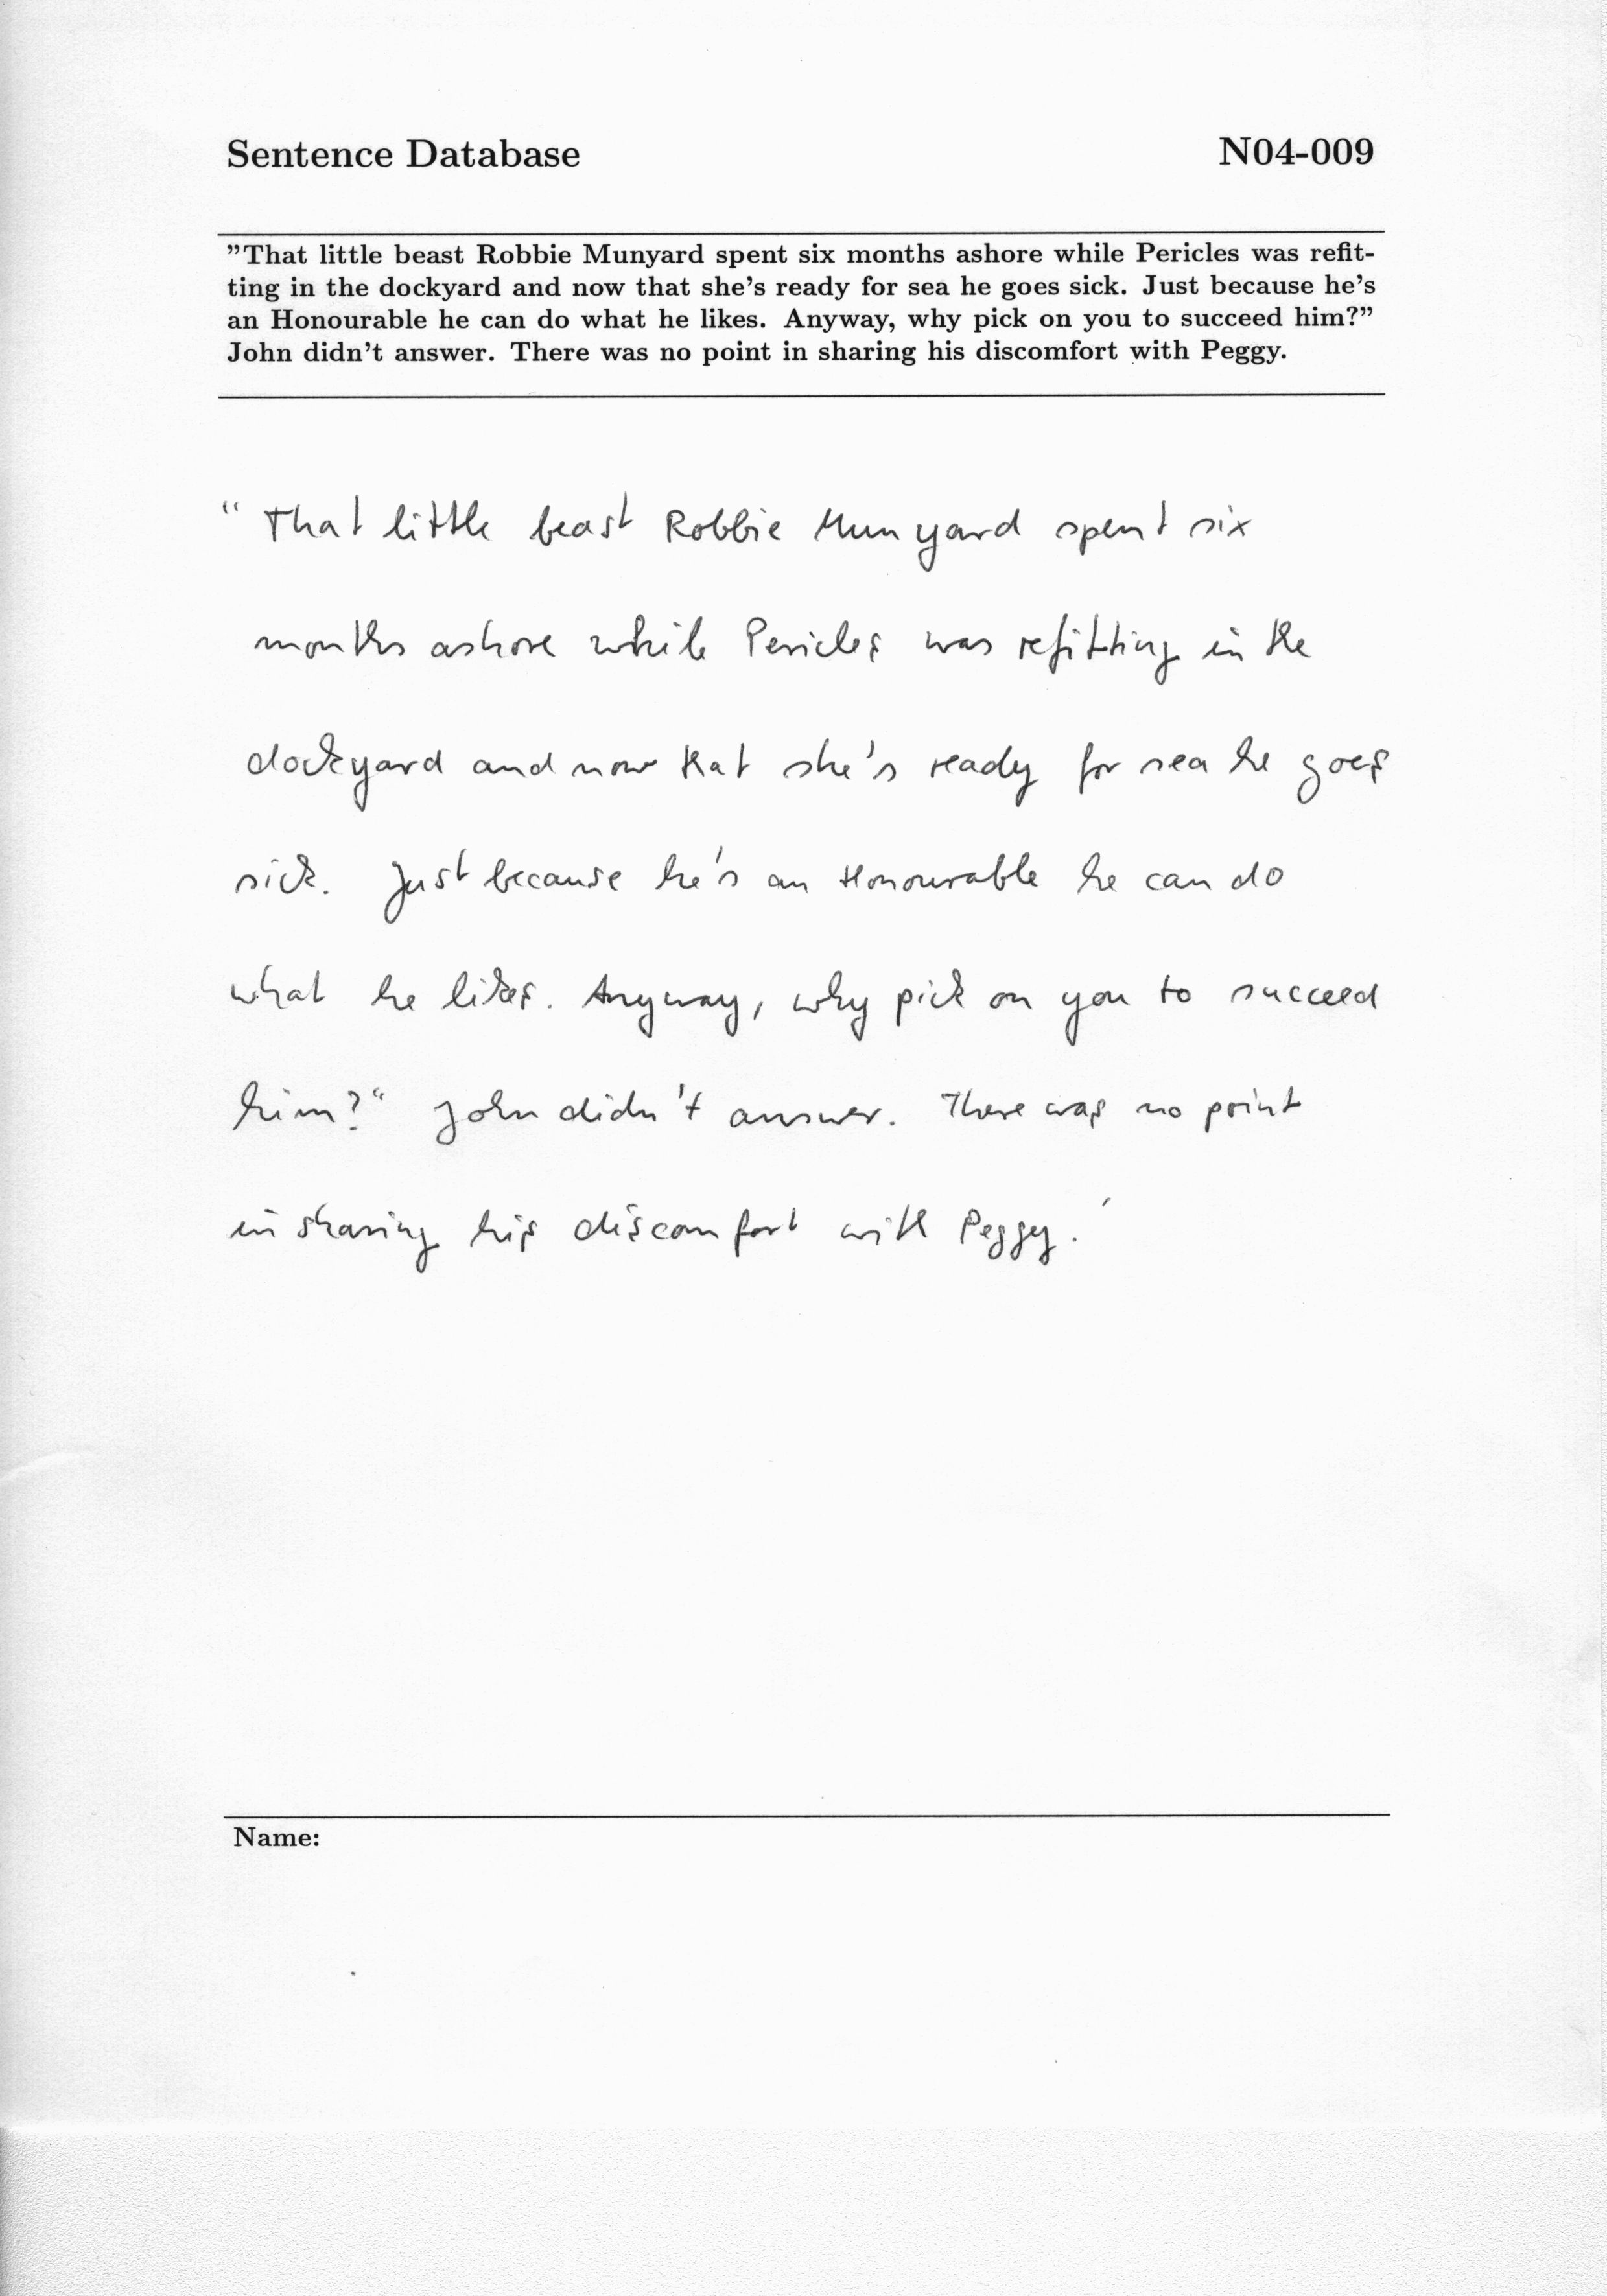 Sentence Database N04-009
"That little beast Robbie Munyard spent six months ashore while Pericles was refit-
ting in the dockyard and now that she's ready for sea he goes sick. Just because he's
an Honourable he can do what he likes. Anyway, why pick on you to succeed him?"
John didn't answer. There was no point in sharing his discomfort with Peggy.
"That little beast Robbie Munyard spent six
months ashore while Pericles was refitting in the
dockyard and now that she's ready for sea he goes
sick. Just because he's an Honourable he can do
what he likes. Anyway, why pick on you to succeed
him?" John didn't answer. There was no point
in sharing his discomfort with Peggy.'
Name: